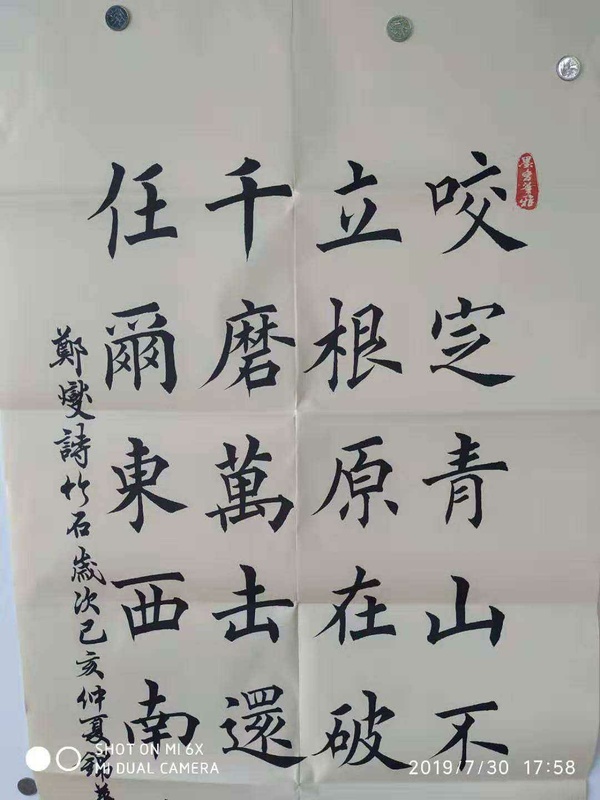 咬定青山不
立根原在破
千磨萬击還
任爾東西南
鄭燮詩竹石歲次己亥仲夏錦
SHOT ON MI 6X
MI DUAL CAMERA
2019/7/30 17:58